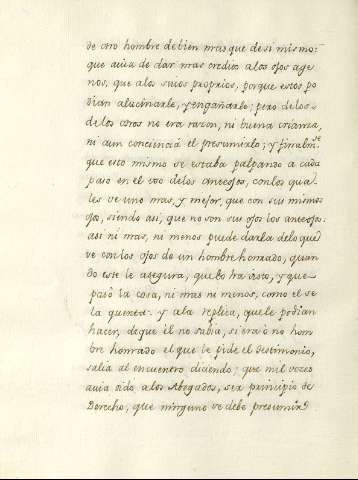 de otro hombre de bien mas que de si mismo:
que avia de dar mas credito a los ojos age
nos, que a los suios proprios, porque estos po
dian alucinarle, y engañarle; pero de los
de los otros no era razon, ni buena crianza,
ni aun conciencia el presumirlo; y finalm.te
que esto mismo se estaba palpando a cada
paso en el uso de los anteojos, con los qua-
les se ve mas, y mejor, que con sus mismos
ojos, siendo asi, que no son sus ojos los anteojos:
asi ni mas, ni menos puede darla de lo que
ve con los ojos de un hombre honrado, quan
do este le asegura, que lo ha visto, y que
pasò la cosa, ni mas ni menos, como el se
la quenta. Y a la replica, que le podian
hacer, de que èl no sabia, si era ò no hom
bre honrado el que le pide el testimonio,
salia al encuentro diciendo; que mil veces
avia oido a los Abogados, ser principio de
Derecho, que ninguno se debe presumir